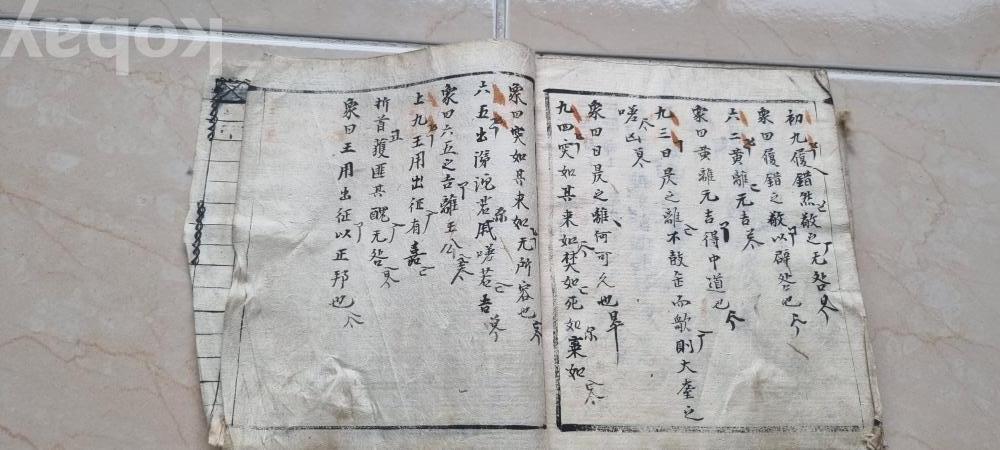 初九履錯然敬之无咎
象曰履錯之敬以辟咎也
六二黃離元吉
象曰黃離元吉得中道也
九三日昃之離不鼓缶而歌則大耋之
嗟凶
象曰日昃之離何可久也
九四突如其來如焚如死如棄如
象曰突如其來如无所容也
六五出涕沱若戚嗟若吉
象曰六五之吉離王公
上九王用出征有嘉
折首獲匪其醜无咎
象曰王用出征以正邦也
kobay